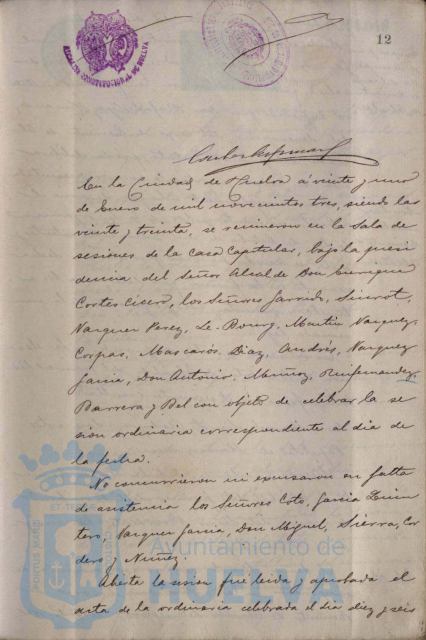 ALCALDIA CONSTITUCIONAL DE HUELVA
12
En la Ciudad de Huelva á veinte y uno
de Enero de mil novecientos tres, siendo las
veinte y treinta, se reunieron en la Sala de
sesiones de la Casa Capitular, bajo la presi
dencia del Señor Alcalde Don Enrique
Cortes Cicero, los Señores Garrido, Sincrot,
Vazquez Perez, Le-Bourg, Martin Vazquez,
Corpas, Mascarós, Diaz, Andrés, Vazquez
Garcia, Don Antonio, Muñoz, Ruifernandez,
Barrera y Bel con objeto de celebrar la se
sion ordinaria correspondiente al dia de
la fecha.
No concurrieron ni escusaron su falta
de asistencia los Señores Coto, Garcia Quin
tero, Vazquez Garcia, Don Miguel, Sierra, Cor
dero y Nuñez.
Abierta la sesion fué leida y aprobada el
acta de la ordinaria celebrada el dia diez y seis
Ayuntamiento de
HUELVA
PORTUS MARIS